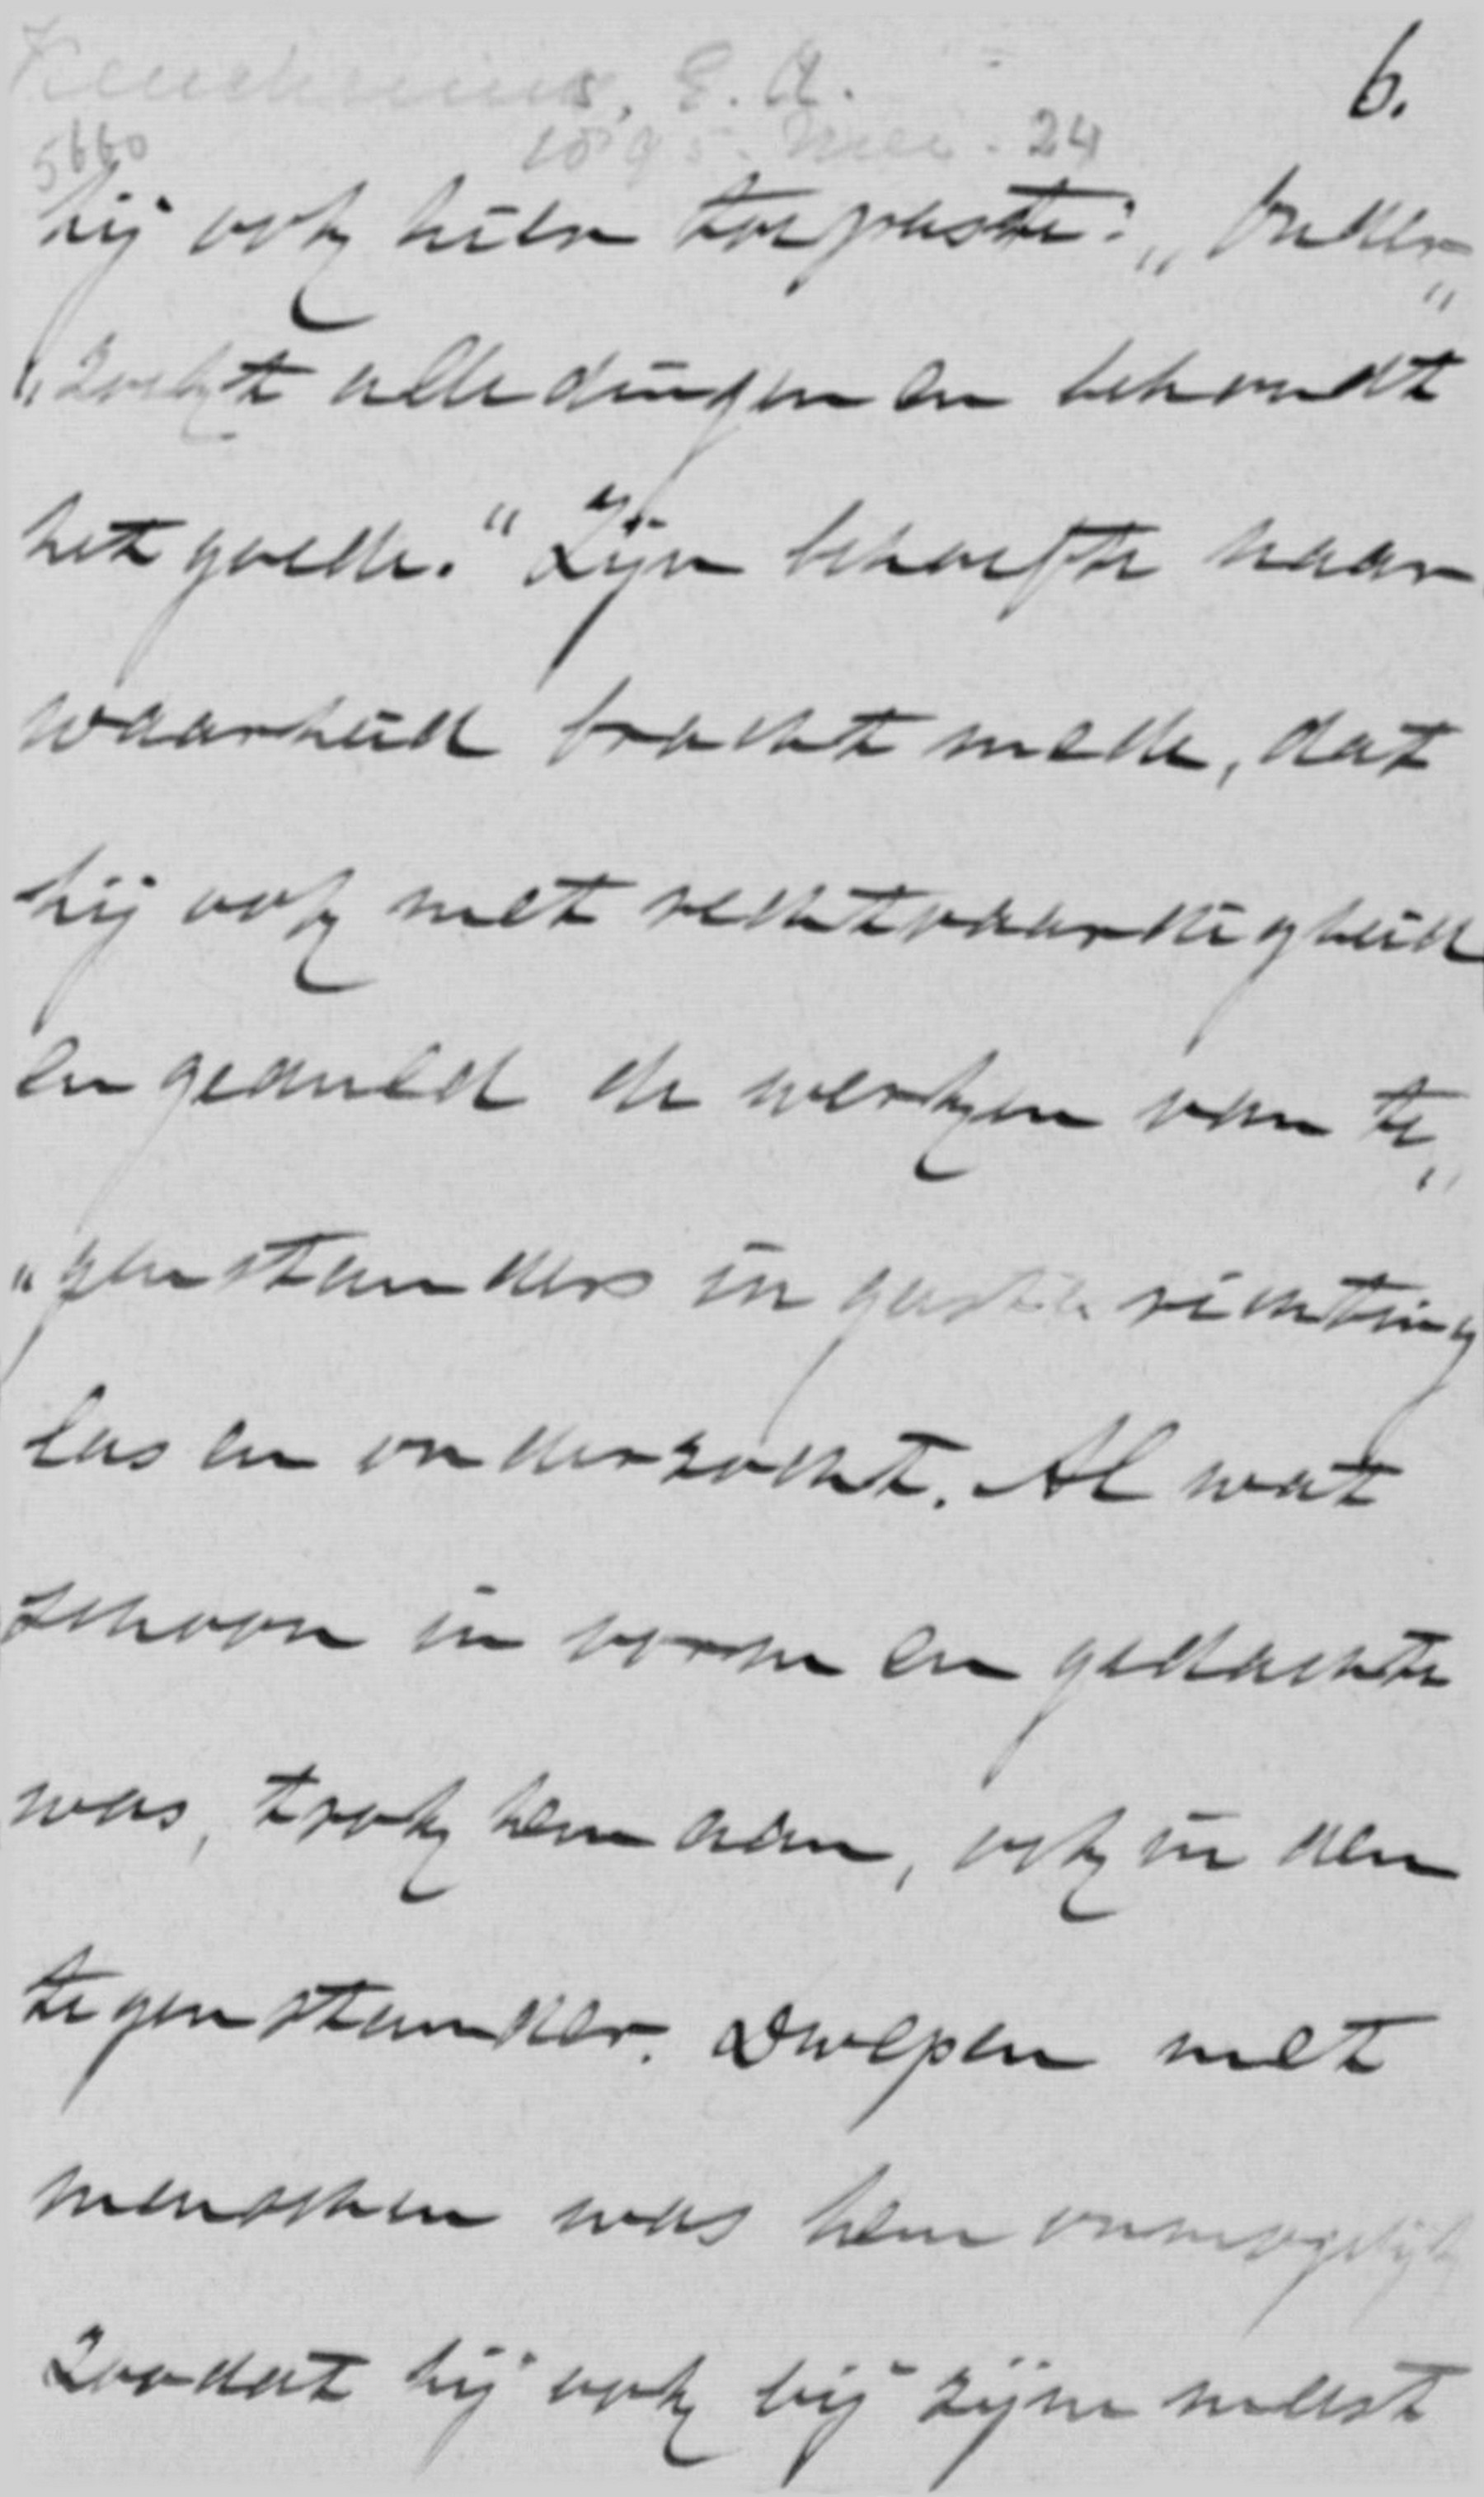 Keuchenius, E. A. 6.
5660 1895. Mei. 24
hij ook hier toepaste: „Onder„
„zoekt alle dingen en behoudt
het goede." Zijn behoefte naar
waarheid bracht mede, dat
hij ook met rechtvaardigheid
en geduld de werken van te„
„genstanders in geheele richting
las en onderzocht. Al wat
schoon in vorm en gedachte
was, trok hem aan, ook in den
tegenstander. Dwepen met
menschen was hem onmogelijk
zoodat hij ook bij zijne meest